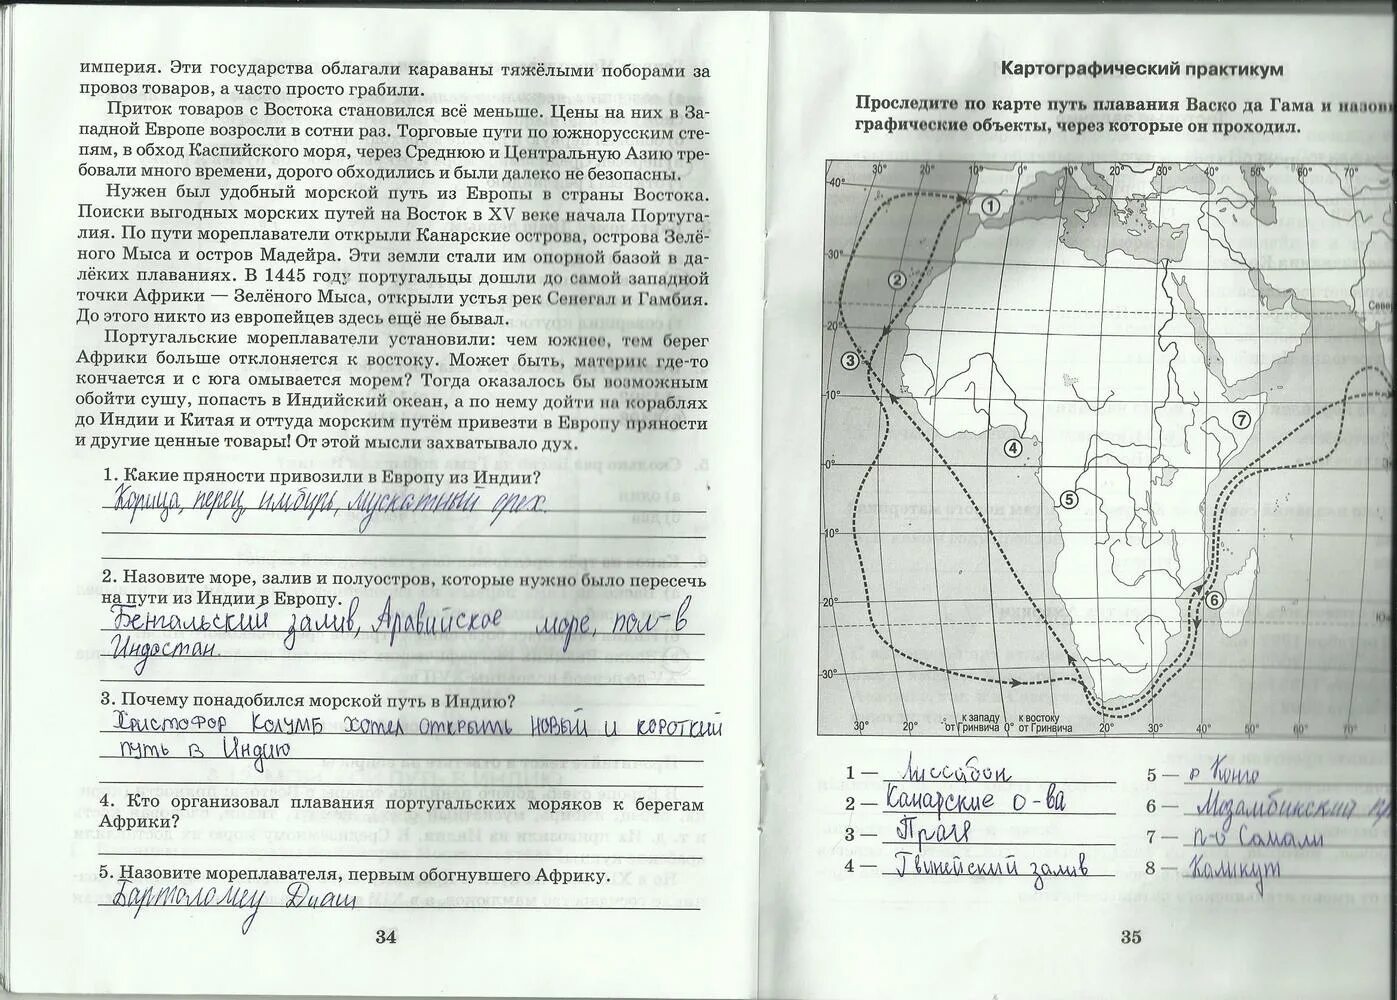 империя. Эти государства облагали караваны тяжёлыми поборами за
провоз товаров, а часто просто грабили.
Приток товаров с Востока становился всё меньше. Цены на них в За-
падной Европе возросли в сотни раз. Торговые пути по южнорусским сте-
пям, в обход Каспийского моря, через Среднюю и Центральную Азию тре-
бовали много времени, дорого обходились и были далеко не безопасны.
Нужен был удобный морской путь из Европы в страны Востока.
Поиски выгодных морских путей на Восток в XV веке начала Португа-
лия. По пути мореплаватели открыли Канарские острова, острова Зелё-
ного Мыса и остров Мадейра. Эти земли стали им опорной базой в да-
лёких плаваниях. В 1445 году португальцы дошли до самой западной
точки Африки — Зелёного Мыса, открыли устья рек Сенегал и Гамбия.
До этого никто из европейцев здесь ещё не бывал.
Португальские мореплаватели установили: чем южнее, тем берег
Африки больше отклоняется к востоку. Может быть, материк где-то
кончается и с юга омывается морем? Тогда оказалось бы возможным
обойти сушу, попасть в Индийский океан, а по нему дойти на кораблях
до Индии и Китая и оттуда морским путём привезти в Европу пряности
и другие ценные товары! От этой мысли захватывало дух.
1. Какие пряности привозили в Европу из Индии?
Корица, перец, имбирь, мускатный орех.
2. Назовите море, залив и полуостров, которые нужно было пересечь
на пути из Индии в Европу.
Бенгальский залив, Аравийское море, пол-в
Индостан.
3. Почему понадобился морской путь в Индию?
Христофор Колумб хотел открыть новый и короткий
путь в Индию
4. Кто организовал плавания португальских моряков к берегам
Африки?
5. Назовите мореплавателя, первым обогнувшего Африку.
Бартоломеу Диаш
34
Картографический практикум
Проследите по карте путь плавания Васко да Гама и назови
графические объекты, через которые он проходил.
30° 20° 10° 0° 10° 20° 30° 40° 50° 60° 70°
40°
1
30°
2
Севе
20°
3
10°
7
4
0°
5
10°
6
20°
Ю
30°
30° 20° к западу от Гринвича 0° к востоку от Гринвича 20° 30° 40° 50° 60° 70°
1 — Лиссабон
2 — Канарские о-ва
3 — Прая
4 — Гвинейский залив
5 — р Конго
6 — Мозамбикский пр
7 — п-в Сомали
8 — Каликут
35